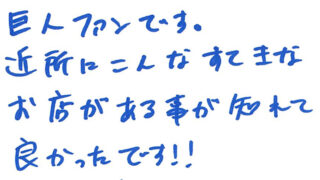 巨人ファンです。
近所にこんなすてきな
お店がある事が知れて
良かったです!!